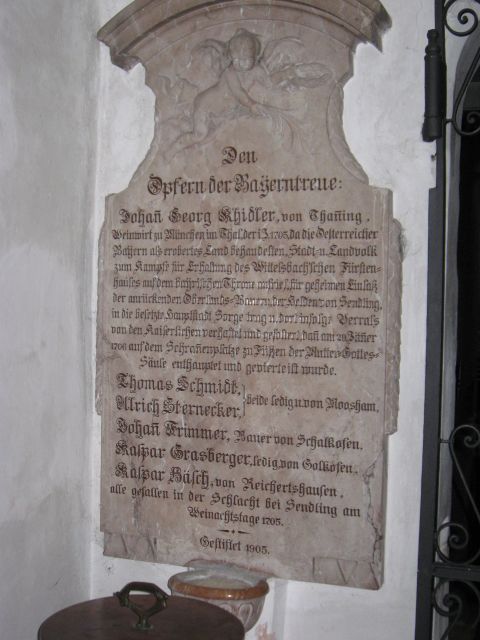 Den
Opfern der Bayerntreue:
Johañ Georg Khidler, von Thañing,
Weinwirt zu München im Thal, der i.J. 1705, da die Oesterreicher
Bayern als erobertes Land behandelten, Stadt- u. Landvolk
zum Kampfe für Erhaltung des Wittelsbach'schen Fürsten-
hauses auf dem bayrischen Throne aufrief, für geheimen Einlaß
der anrückenden Oberlands-Bauern, der Helden von Sendling,
in die besetzte Hauptstadt Sorge trug u. dort infolge Verrats
von den Kaiserlichen verhaftet und gefoltert, dañ am 29. Jäner
1706 auf dem Schrañenplatze zu Füßen der Mutter-Gottes-
Säule enthauptet und gevierteilt wurde.
Thomas Schmidt,
Ulrich Sternecker, beide ledig u. von Moosham,
Johañ Frimmer, Bauer von Schalkofen,
Kaspar Grasberger, ledig, von Golkofen,
Kaspar Häsch, von Reichertshausen,
alle gefallen in der Schlacht bei Sendling am
Weinachtstage 1705.
Gestiftet 1905.